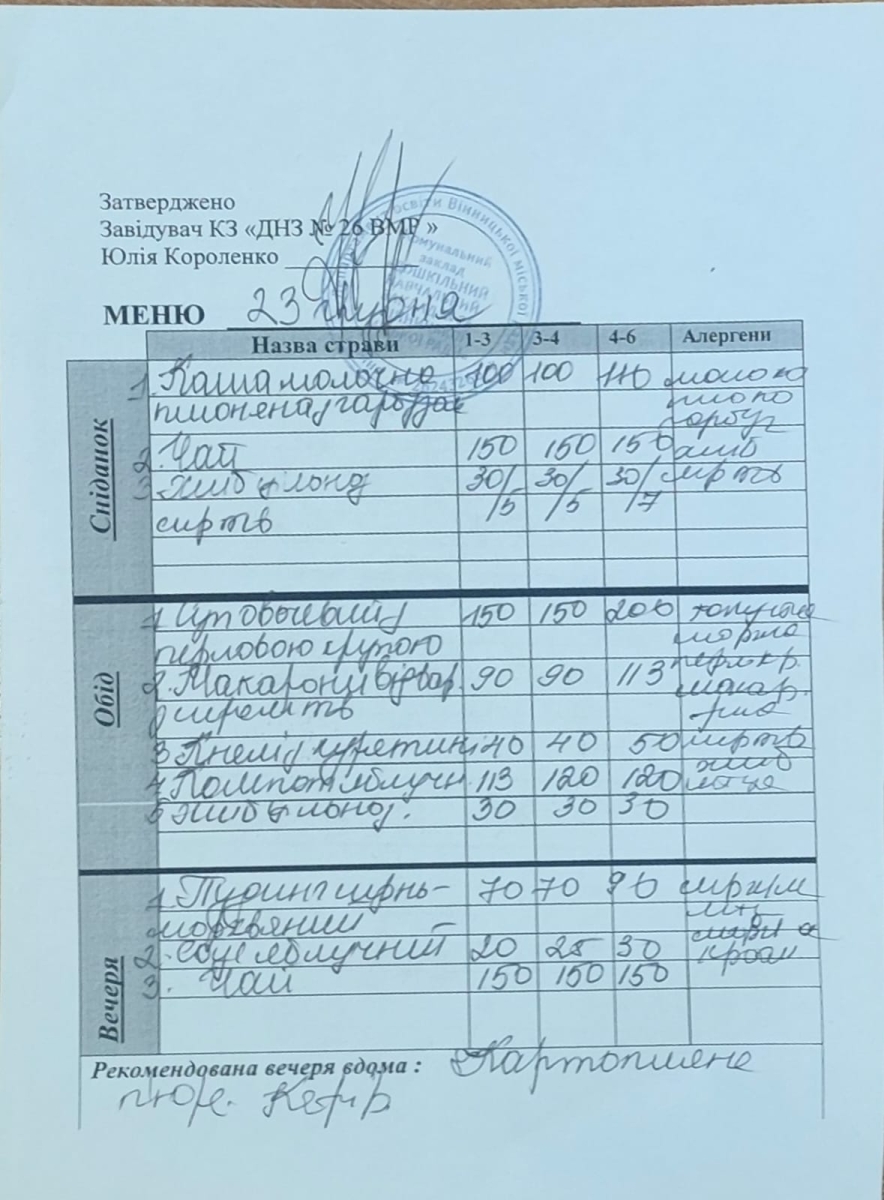 Затверджено
Завідувач КЗ «ДНЗ № 26 ВМР »
Юлія Короленко
МЕНЮ 23 грудня
Назва страви 1-3 3-4 4-6 Алергени
Сніданок
1. Каша молочна 100 100 110 молоко
пшоняна з гарбузом пшоно
гарбуз
2. Чай 150 150 150 хліб
3. Хліб цільноз 30/5 30/5 30/7 сир тв
сир тв
Обід
1. Суп овочевий з 150 150 200 капуста
перловою крупою морква
2. Макарони відвар. 90 90 113 перл кр.
з сиром тв макар.
3. Кнелі з курятини 40 40 50 сир тв
4. Компот яблучн 113 120 120 хліб
5 Хліб цільноз. 30 30 30
Вечеря
1. Пудинг сирно- 70 70 90
морквяний
2. Соус яблучний 20 25 30
3. Чай 150 150 150
Рекомендована вечеря вдома : Картопляне
пюре. Кефір